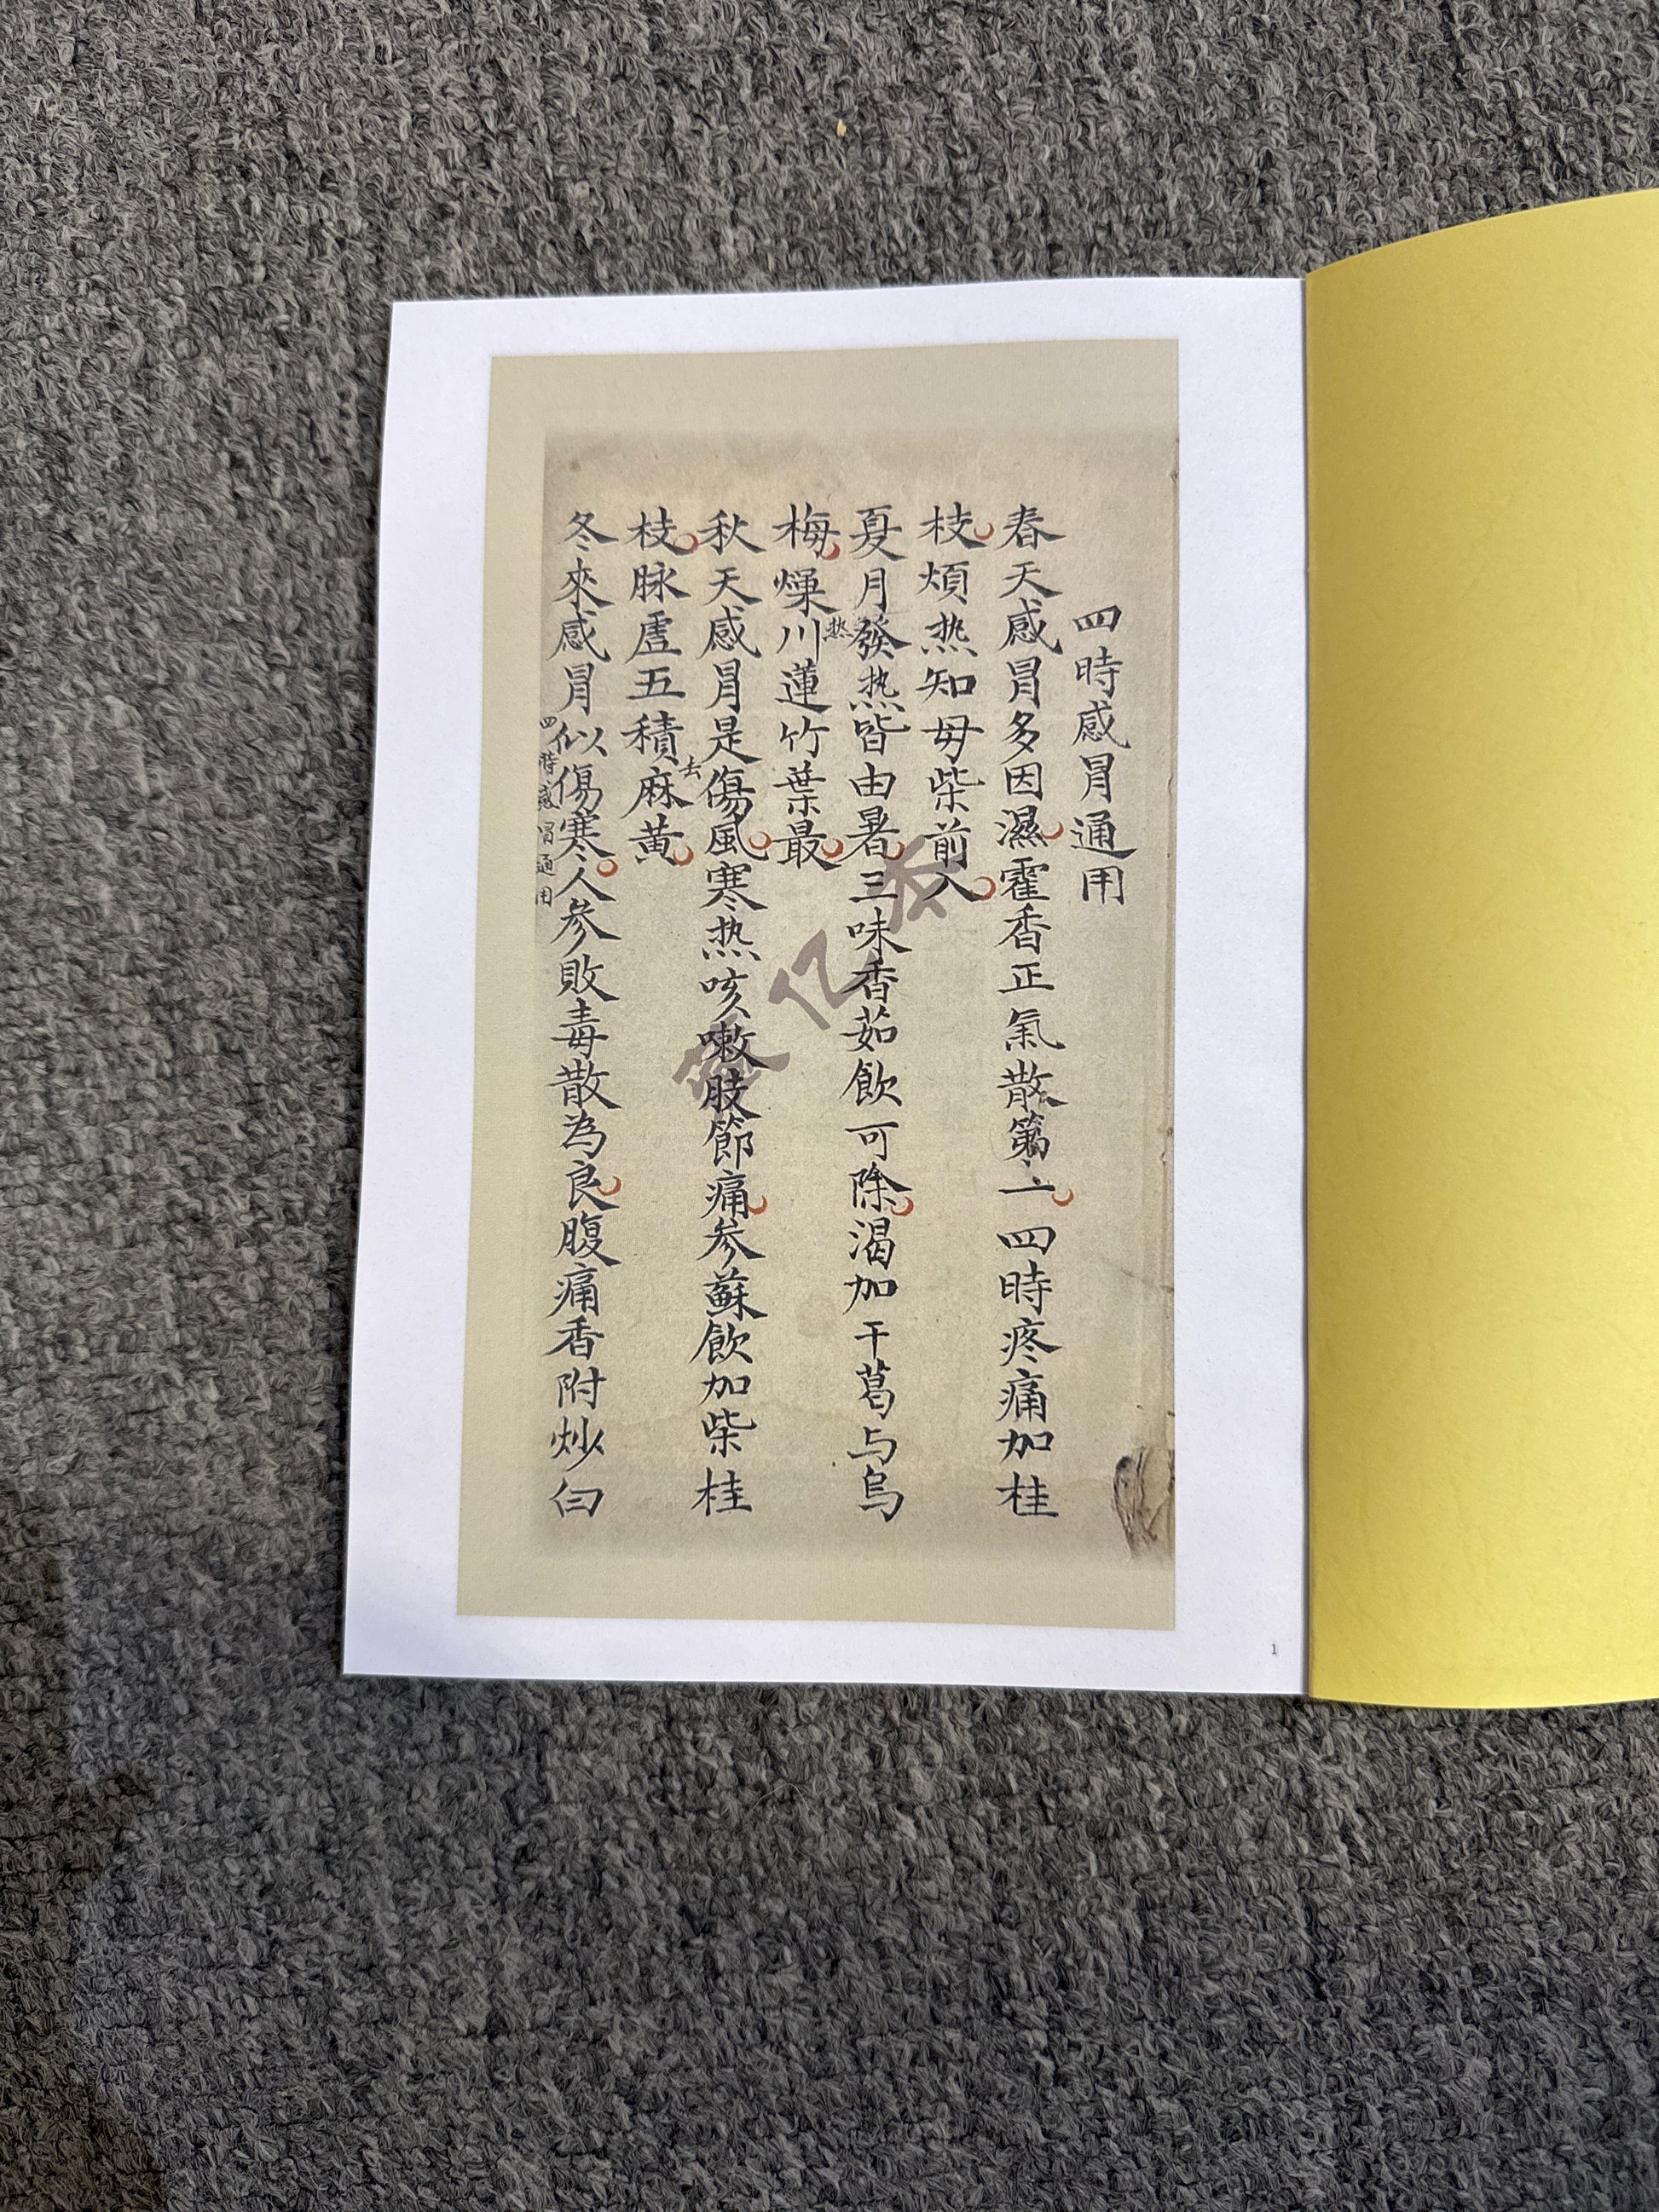 四時感冒通用
春天感冒多因濕霍香正氣散第一四時疼痛加桂
枝煩热知母柴前入
夏月發热皆由暑三味香茹飲可除渴加干葛与烏
梅燥热川蓮竹葉最
秋天感冒是傷風寒热咳嗽肢節痛参蘇飲加柴桂
枝脉虛五積去麻黄
冬來感冒似傷寒人参敗毒散為良腹痛香附炒白
四時感冒通用
1